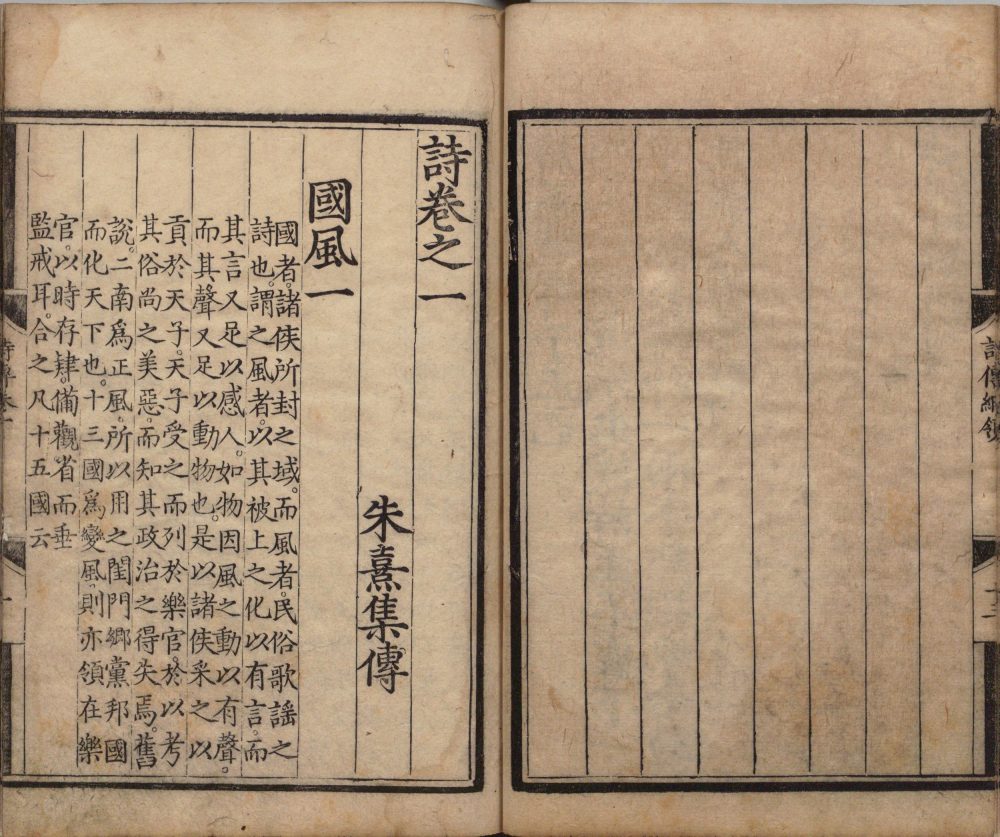 詩傳綱領
詩卷之一
朱熹集傳
國風一
國者。諸侯所封之域。而風者。民俗歌謠之
詩也。謂之風者。以其被上之化以有言。而
其言又足以感人。如物因風之動以有聲。
而其聲又足以動物也。是以諸侯采之以
貢於天子。天子受之而列於樂官。於以考
其俗尚之美惡。而知其政治之得失焉。舊
說。二南爲正風。所以用之閨門鄉黨邦國
而化天下也。十三國爲變風。則亦領在樂
官。以時存肄。備觀省而垂
監戒耳。合之凡十五國云